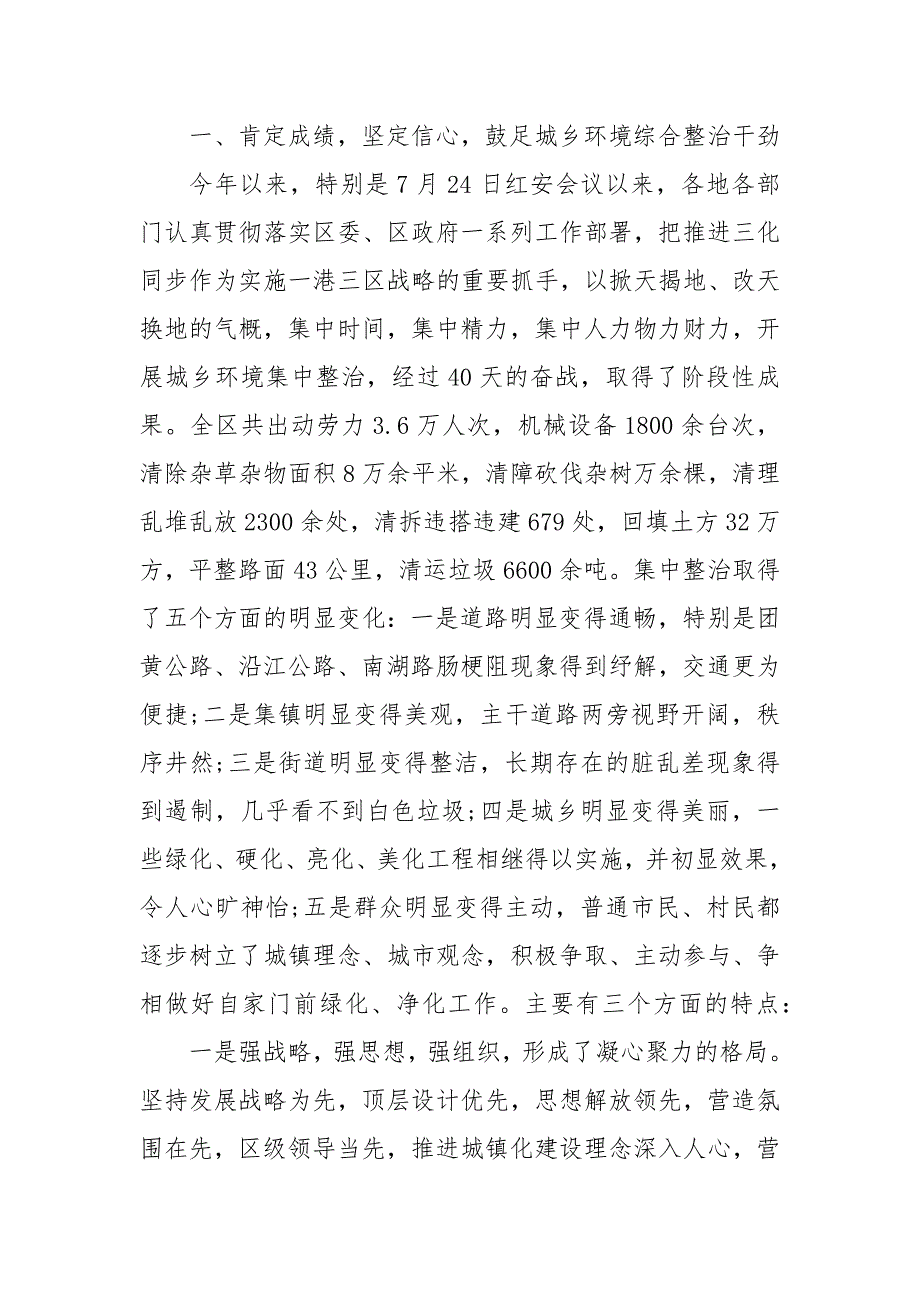 一、肯定成绩，坚定信心，鼓足城乡环境综合整治干劲
今年以来，特别是7月24日红安会议以来，各地各部
门认真贯彻落实区委、区政府一系列工作部署，把推进三化
同步作为实施一港三区战略的重要抓手，以掀天揭地、改天
换地的气概，集中时间，集中精力，集中人力物力财力，开
展城乡环境集中整治，经过40天的奋战，取得了阶段性成
果。全区共出动劳力3.6万人次，机械设备1800余台次，
清除杂草杂物面积8万余平米，清障砍伐杂树万余棵，清理
乱堆乱放2300余处，清拆违搭违建679处，回填土方32万
方，平整路面43公里，清运垃圾6600余吨。集中整治取得
了五个方面的明显变化：一是道路明显变得通畅，特别是团
黄公路、沿江公路、南湖路肠梗阻现象得到纾解，交通更为
便捷;二是集镇明显变得美观，主干道路两旁视野开阔，秩
序井然;三是街道明显变得整洁，长期存在的脏乱差现象得
到遏制，几乎看不到白色垃圾;四是城乡明显变得美丽，一
些绿化、硬化、亮化、美化工程相继得以实施，并初显效果，
令人心旷神怡;五是群众明显变得主动，普通市民、村民都
逐步树立了城镇理念、城市观念，积极争取、主动参与、争
相做好自家门前绿化、净化工作。主要有三个方面的特点：
一是强战略，强思想，强组织，形成了凝心聚力的格局。
坚持发展战略为先，顶层设计优先，思想解放领先，营造氛
围在先，区级领导当先，推进城镇化建设理念深入人心，营